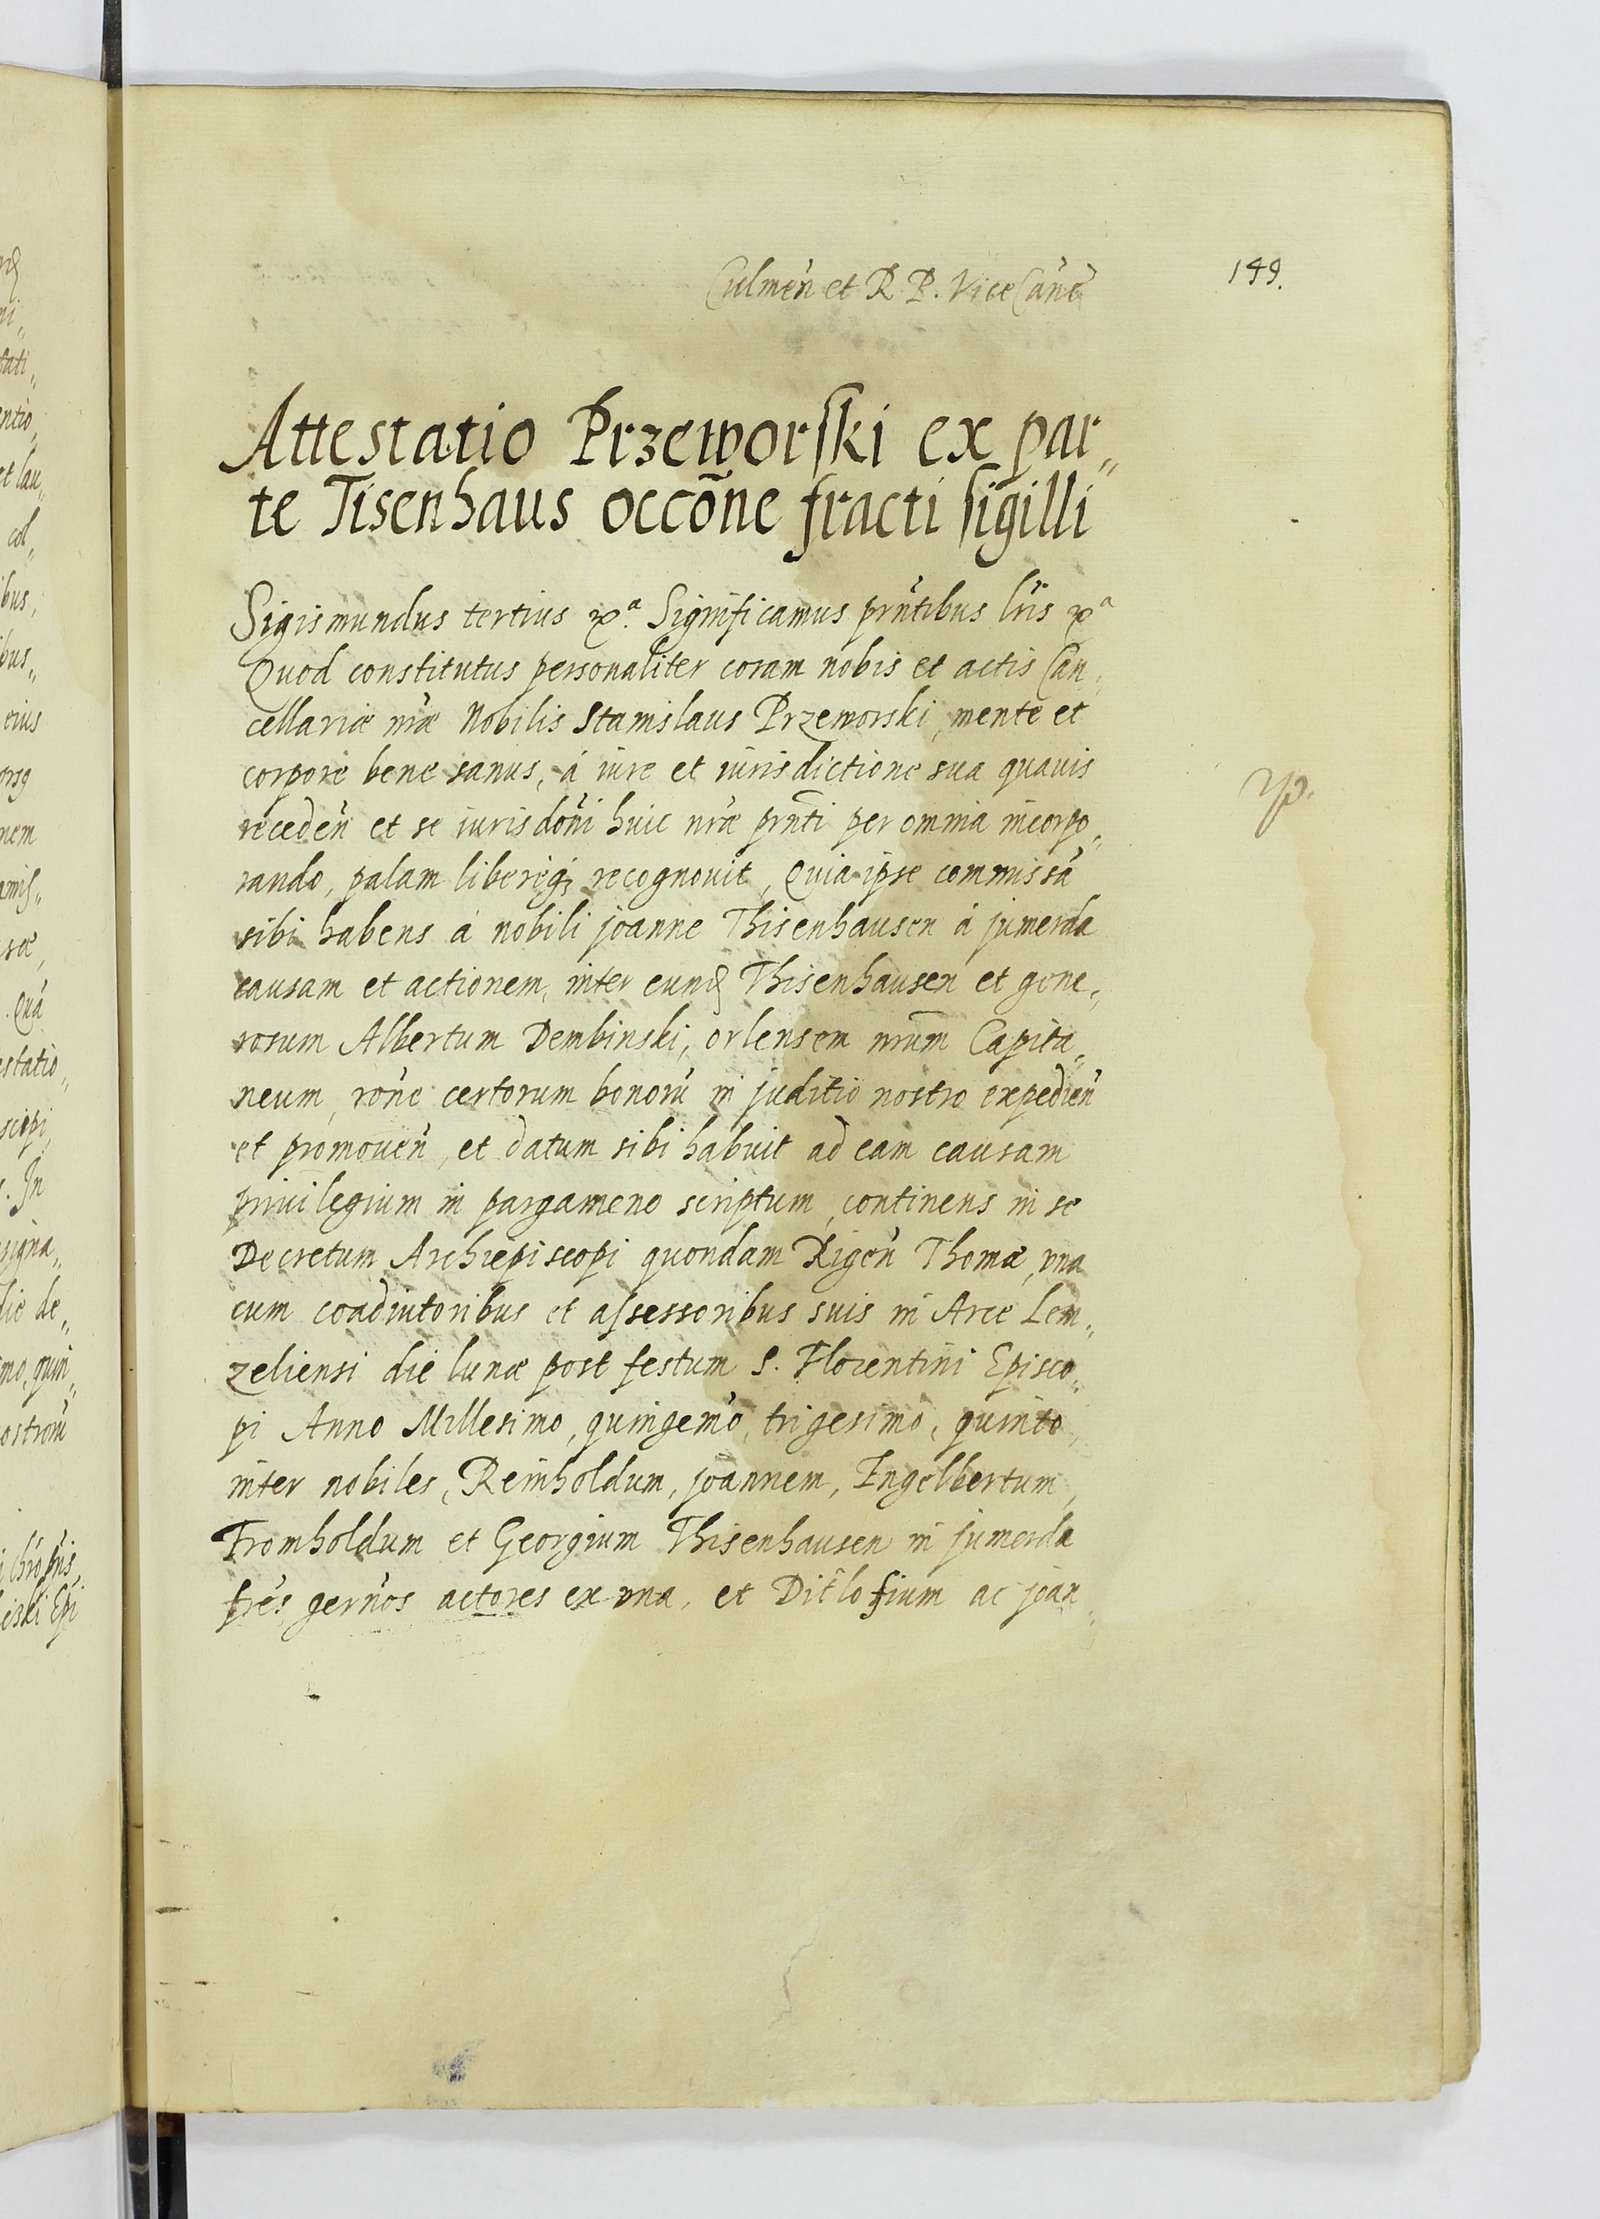 Culmen̄ et R. P. Vice Canc̄
149.
Attestatio Przeworski ex par„
te Tisenhaus occōne fracti sigilli
Sigismundus tertius &ᵃ. Significamus prn̄tibus lr̄is &ᵃ
Quod constitutus personaliter coram nobis et actis Can„
cellariæ nr̄æ Nobilis Stanislaus Przeworski, mente et
corpore bene sanus, à iure et iurisdictione sua quauis
receden̄ et se iurisdōni huic nr̄æ prn̄ti per omnia incorpo„
rando, palam libereq; recognouit, Quia ipse commissā
sibi habens à nobili joanne Thisenhausen à jumerda
causam et actionem, inter eund Thisenhausen et gene„
rosum Albertum Dembinski, orlensem nr̄um Capita„
neum, rōne certorum bonorū in juditio nostro expedien̄
et promouen̄, et datum sibi habuit ad eam causam
priuilegium in pargameno scriptum, continens in se
Decretum Archiepiscopi quondam Rigen̄ Thomæ, vna
cum coadiutoribus et assessoribus suis in Arce Lem„
zeliensi die lunæ post festum S. Florentini Episco„
pi Anno Millesimo, quingen̄mo, trigesimo, quinto,
inter nobiles, Reinholdum, joannem, Engelbertum,
Fromholdum et Georgium Thisenhausen in jumerda
frēs gern̄os actores ex vna, et Ditlofium ac joan„